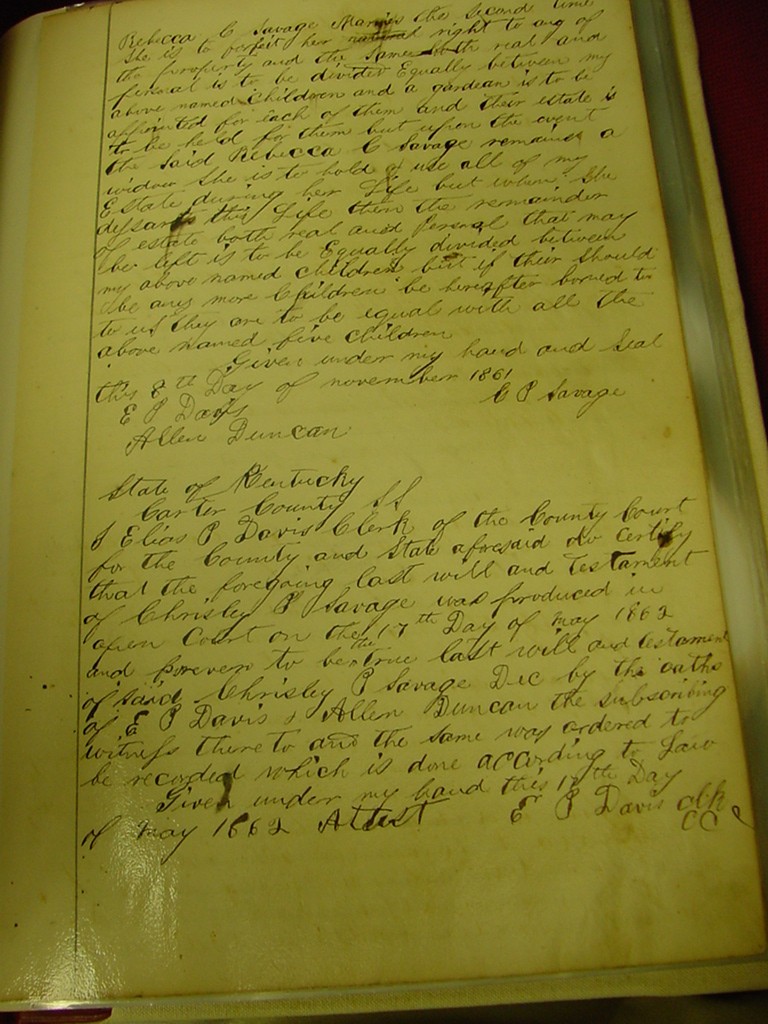 Rebecca C Savage Marries the second time
She is to forfeit her natural right to any of
the property and the same both real and
personal is to be divided Equally between my
above named Children and a gardean is to be
appointed for each of them and their estate is
to be held for them but upon the event
the said Rebecca C Savage remains a
widow She is to hold & use all of my
Estate during her Life but when She
departs this Life then the remainder
of estate both real and Personal that may
be left is to be Equally divided between
my above named children but if their should
be any more Children be hereafter borned to
to us they are to be equal with all the
above named five children
Given under my hand and Seal
this 8th Day of november 1861
C P Savage
E P Davis
Allen Duncan
State of Kentucky
Carter County SS
I Elias P Davis Clerk of the County Court
for the County and State aforesaid do Certify
that the foregoing last will and Testament
of Chrisley P Savage was produced in
open Court on the 17th Day of May 1862
and proven to be the true last will and testament
of said Chrisley P Savage Dec by the oaths
of E P Davis & Allen Duncan the subscribing
witness thereto and the same was ordered to
be recorded which is done according to Law
Given under my hand this 17th Day
of may 1862 Attest E P Davis clk
CC